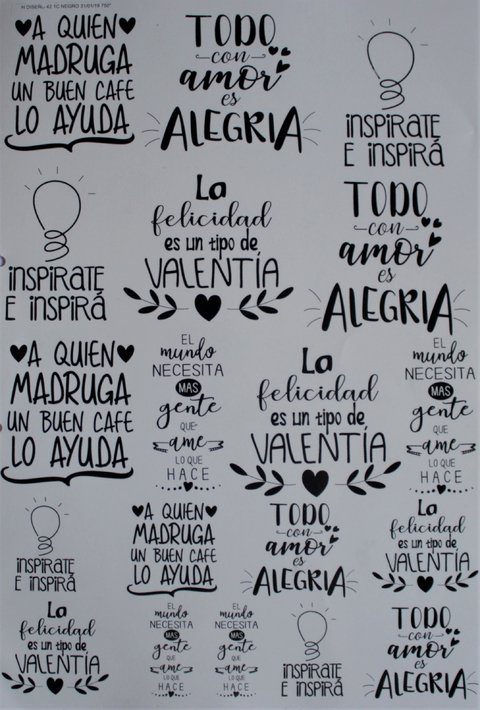 N DISEÑ. 42 1C NEGRO 31/01/19 750°
A QUIEN
MADRUGA
UN BUEN CAFE
LO AYUDA
TODO
con
amor
es
ALEGRIA
INSPIRATE
E INSPIRÁ
INSPIRATE
E INSPIRÁ
La
felicidad
es un tipo de
VALENTÍA
TODO
con
amor
es
ALEGRIA
A QUIEN
MADRUGA
UN BUEN CAFE
LO AYUDA
EL
mundo
NECESITA
MAS
gente
QUE
ame
LO QUE
HACE
La
felicidad
es un tipo de
VALENTÍA
EL
mundo
NECESITA
MAS
gente
QUE
ame
LO QUE
HACE
INSPIRATE
E INSPIRÁ
A QUIEN
MADRUGA
UN BUEN CAFE
LO AYUDA
TODO
con
amor
es
ALEGRIA
La
felicidad
es un tipo de
VALENTÍA
La
felicidad
es un tipo de
VALENTÍA
EL
mundo
NECESITA
MAS
gente
QUE
ame
LO QUE
HACE
EL
mundo
NECESITA
MAS
gente
QUE
ame
LO QUE
HACE
INSPIRATE
E INSPIRÁ
TODO
con
amor
es
ALEGRIA